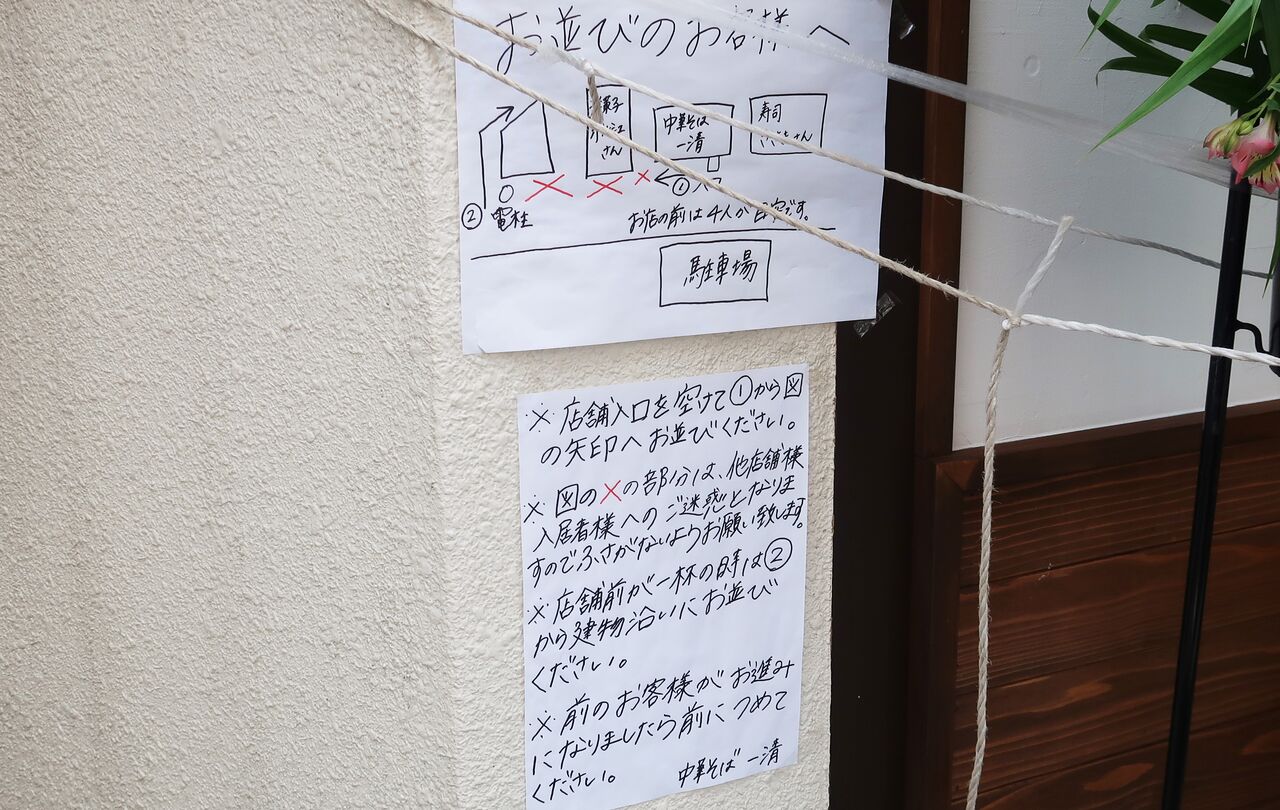 お並びのお客様へ
餃子
さん
中華そば
一清
寿司
さん
①入口
② 電柱
お店の前は4人が目安です。
駐車場
※店舗入口を空けて①から図
の矢印へお並びください。
※図の×の部分は、他店舗様
入居者様へのご迷惑となりま
すのでふさがないようお願い致します。
※店舗前が一杯の時は②
から建物沿いにお並び
ください。
※前のお客様がお進み
になりましたら前につめて
ください。
中華そば 一清